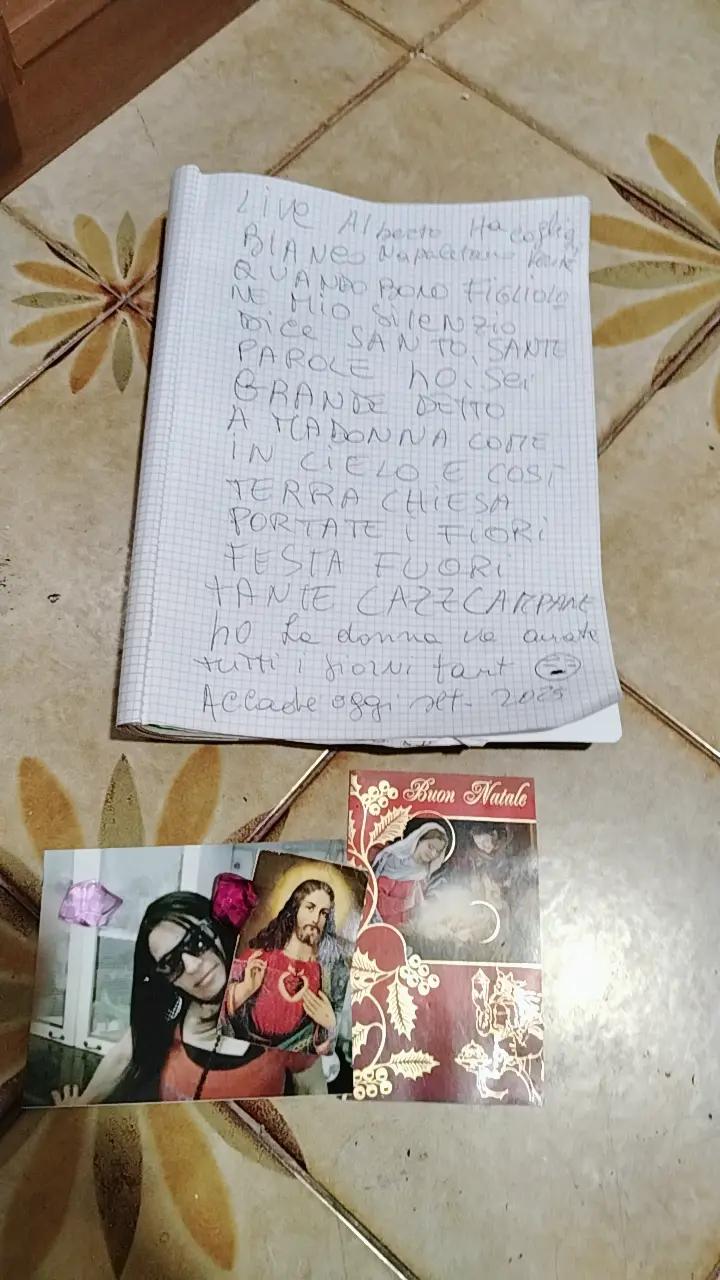 Live Alberto Ha
BIANCO Napoletano
QUANDO BONO FIGLIOLO
NE MIO SILENZIO
DICE SANTO, SANTE
PAROLE hO, SEI
GRANDE DETTO
A MADONNA COME
IN CIELO E COSI
TERRA CHIESA
PORTATE I FIORI
FESTA FUORI
TANTE
hO La donna va amata
tutti i giorni
Accade oggi set. 2025
Buon Natale